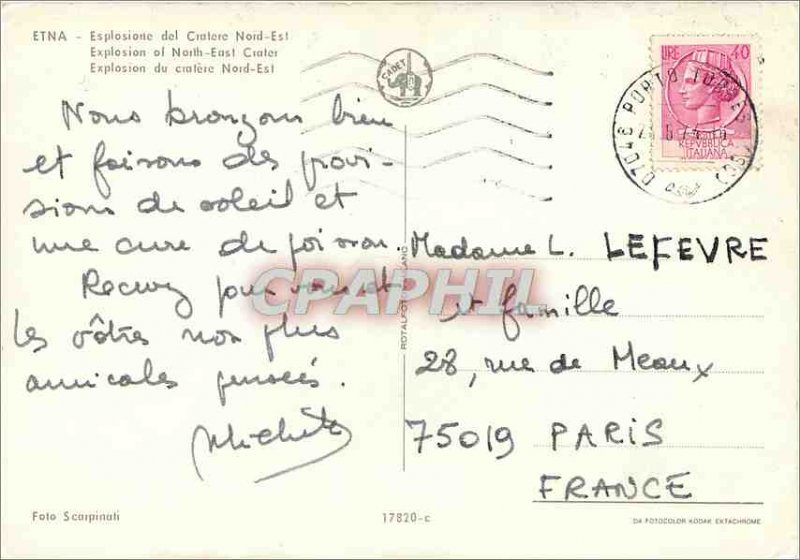 ETNA - Esplosione del Cratere Nord-Est
Explosion of North-East Crater
Explosion du cratère Nord-Est
CADET
LIRE 40
REPVBBLICA
ITALIANA
07046 PORTO TORRES
Nous bronzons bien
et faisons des provi-
sions de soleil et
une cure de poisson.
Recevez pour vous et
les vôtres nos plus
amicales pensées.
Madame L. LEFEVRE
et famille
28, rue de Meaux
75019 PARIS
FRANCE
CPARHIL
Foto Scarpinati
17820-c
DA FOTOCOLOR KODAK EKTACHROME